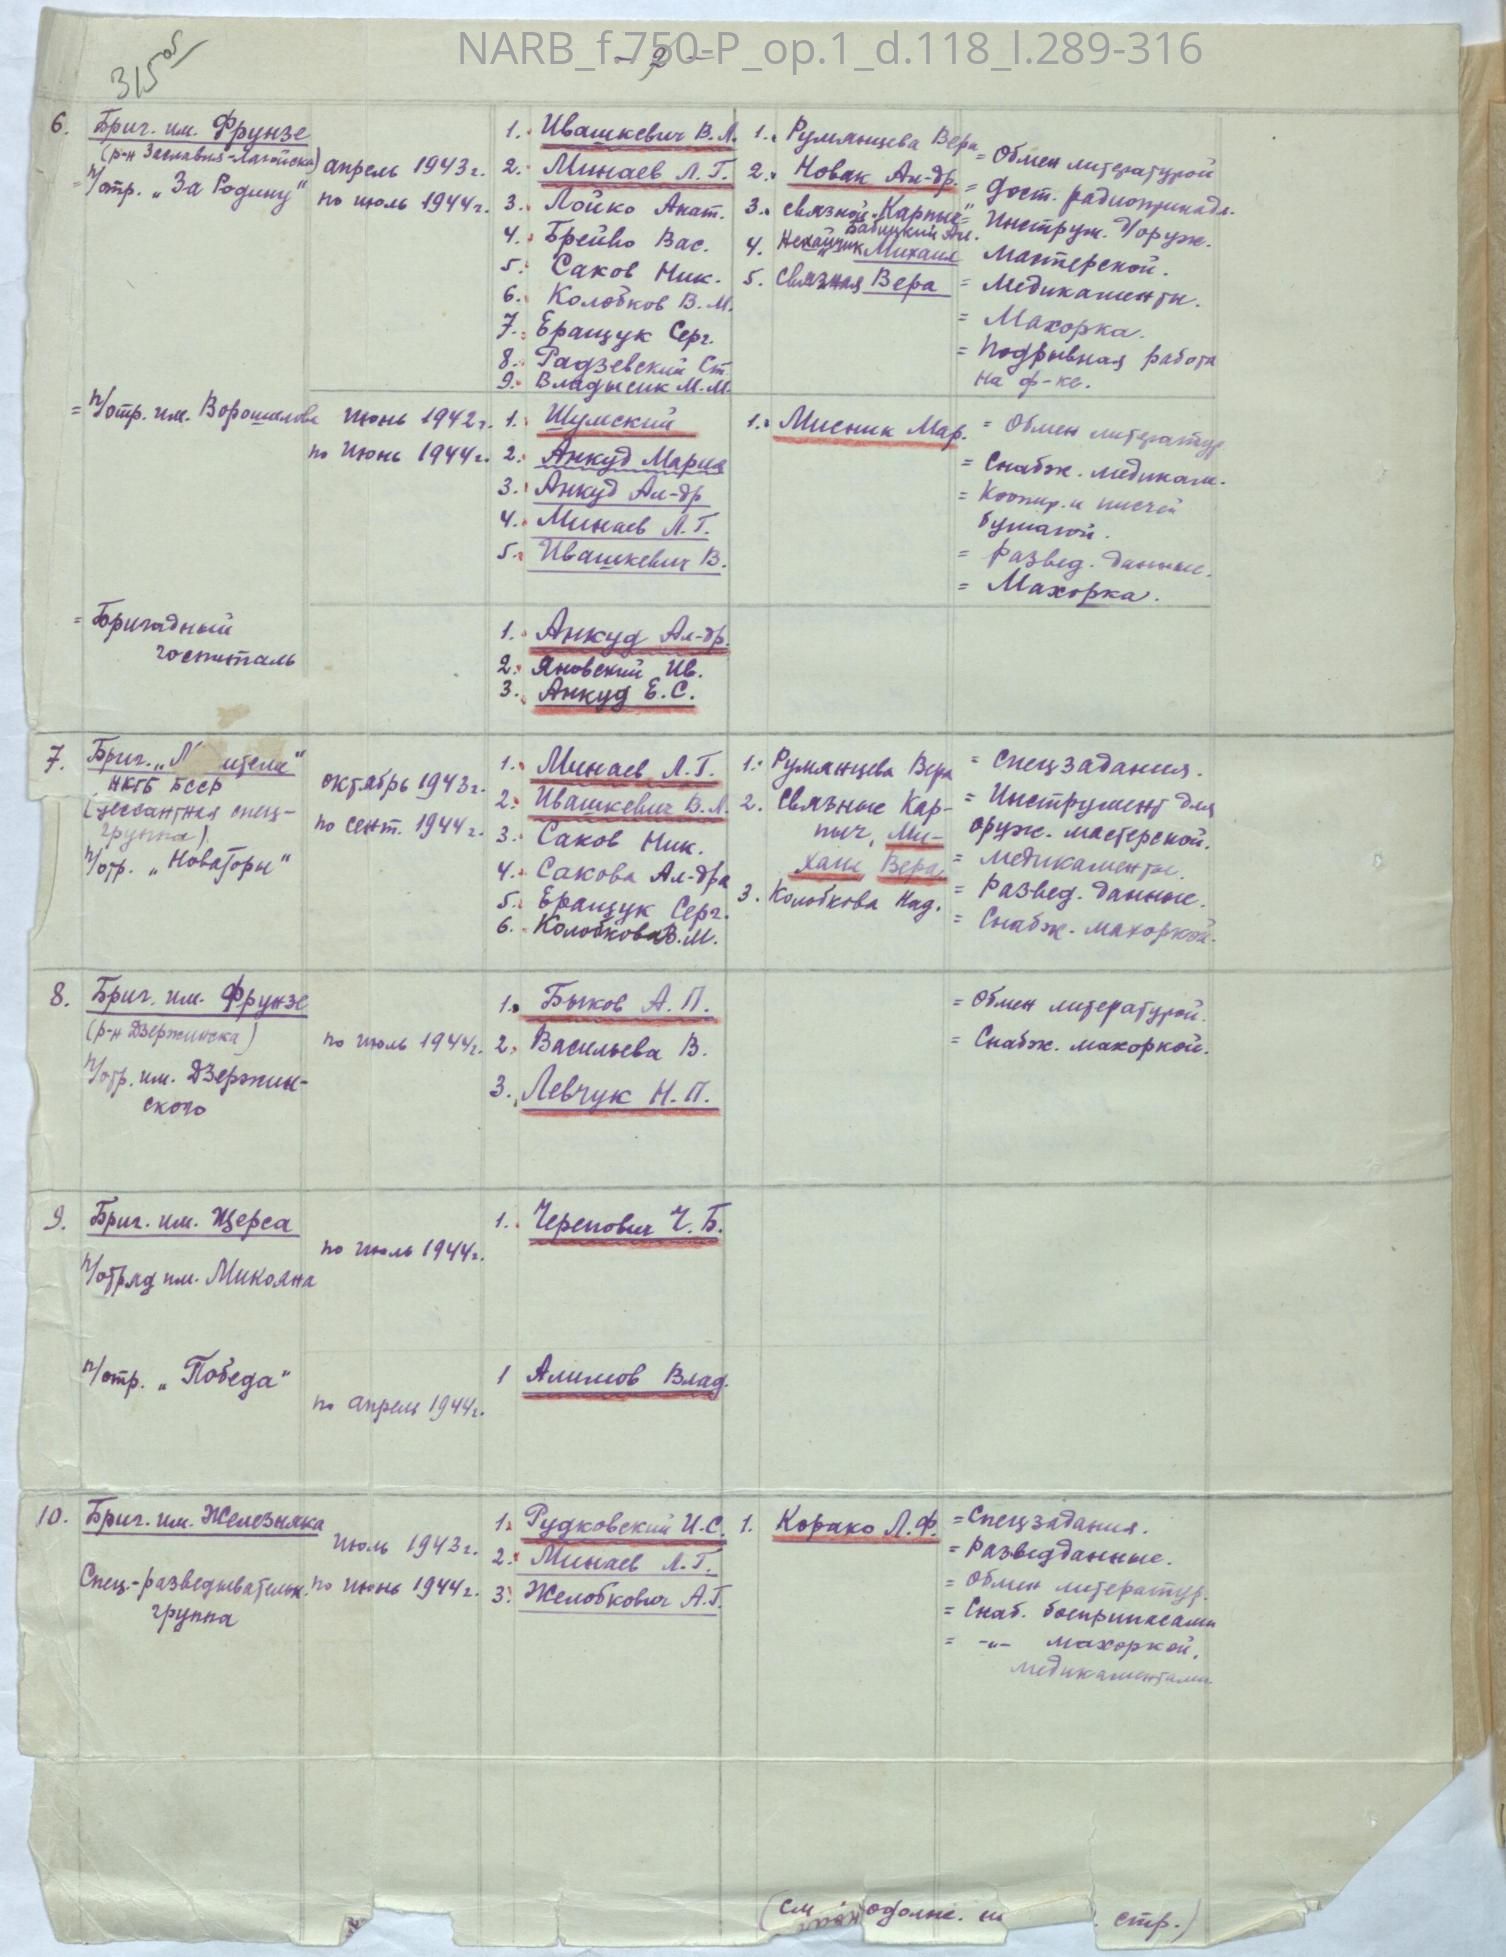 NARB_f.750-P_op.1_d.118_l.289-316
315об
- 2 -
6. Бриг. им. Фрунзе
(р-н Заславля-Логойска)
= п/отр. „За Родину"
апрель 1943г.
по июль 1944г.
1. Ивашкевич В.Л.
2. Минаев Л.Г.
3. Лойко Анат.
4. Брейво Вас.
5. Саков Ник.
6. Колобков В.М.
7. Еращук Серг.
8. Радзевский Ст.
9. Владысик М.М.
1. Румянцева Вера
2. Новак Ал-др.
3. связной „Карпыч"
Бабицкий Ал.
4. Михаил
5. связная Вера
= Обмен литературой
= дост. радиопринадл.
= Инструм. д/оруж.
мастерской.
= Медикаменты.
= Махорка.
= Подрывная работа
на ф-ке.
= п/отр. им. Ворошилова
июнь 1942г.
по июнь 1944г.
1. Шумский
2. Анкуд Мария
3. Анкуд Ал-др
4. Минаев Л.Г.
5. Ивашкевич В.
1. Мисник Мар.
= Обмен литератур.
= Снабж. медикам.
= Копир. и писчей
бумагой.
= развед. данные.
= Махорка.
= Бригадный
госпиталь
1. Анкуд Ал-др.
2. Яновский Ив.
3. Анкуд Е.С.
7. Бриг. „ ителя"
НКГБ БССР
(десантная спец-
группа)
п/отр. „Новаторы"
октябрь 1943г.
по сент. 1944г.
1. Минаев Л.Г.
2. Ивашкевич В.Л.
3. Саков Ник.
4. Сакова Ал-дра
5. Еращук Серг.
6. Колобкова В.М.
1. Румянцева Вера
2. Связные Кар-
пыч, Ми-
хаил Вера
3. Колобкова Над.
= Спецзадания.
= Инструмент для
оруж. мастерской.
= медикаменты.
= развед. данные.
= Снабж. махоркой.
8. Бриг. им. Фрунзе
(р-н Дзержинска)
п/отр. им. Дзержин-
ского
по июль 1944г.
1. Быков А.П.
2. Васильева В.
3. Левчук Н.П.
= Обмен литературой.
= Снабж. махоркой.
9. Бриг. им. Щерса
п/отряд им. Микояна
по июль 1944г.
1. Черепович Ч.Б.
п/отр. „Победа"
по апрель 1944г.
1 Алимов Влад.
10. Бриг. им. Железняка
Спец.-разведывательн.
группа
июль 1943г.
по июнь 1944г.
1. Рудковский И.С.
2. Минаев Л.Г.
3. Желобкович А.Г.
1. Корако Л.Ф.
= Спецзадания.
= Разведданные.
= Обмен литератур.
= Снаб. боеприпасами
= -"- махоркой,
медикаментами.
(см одолж. стр.)